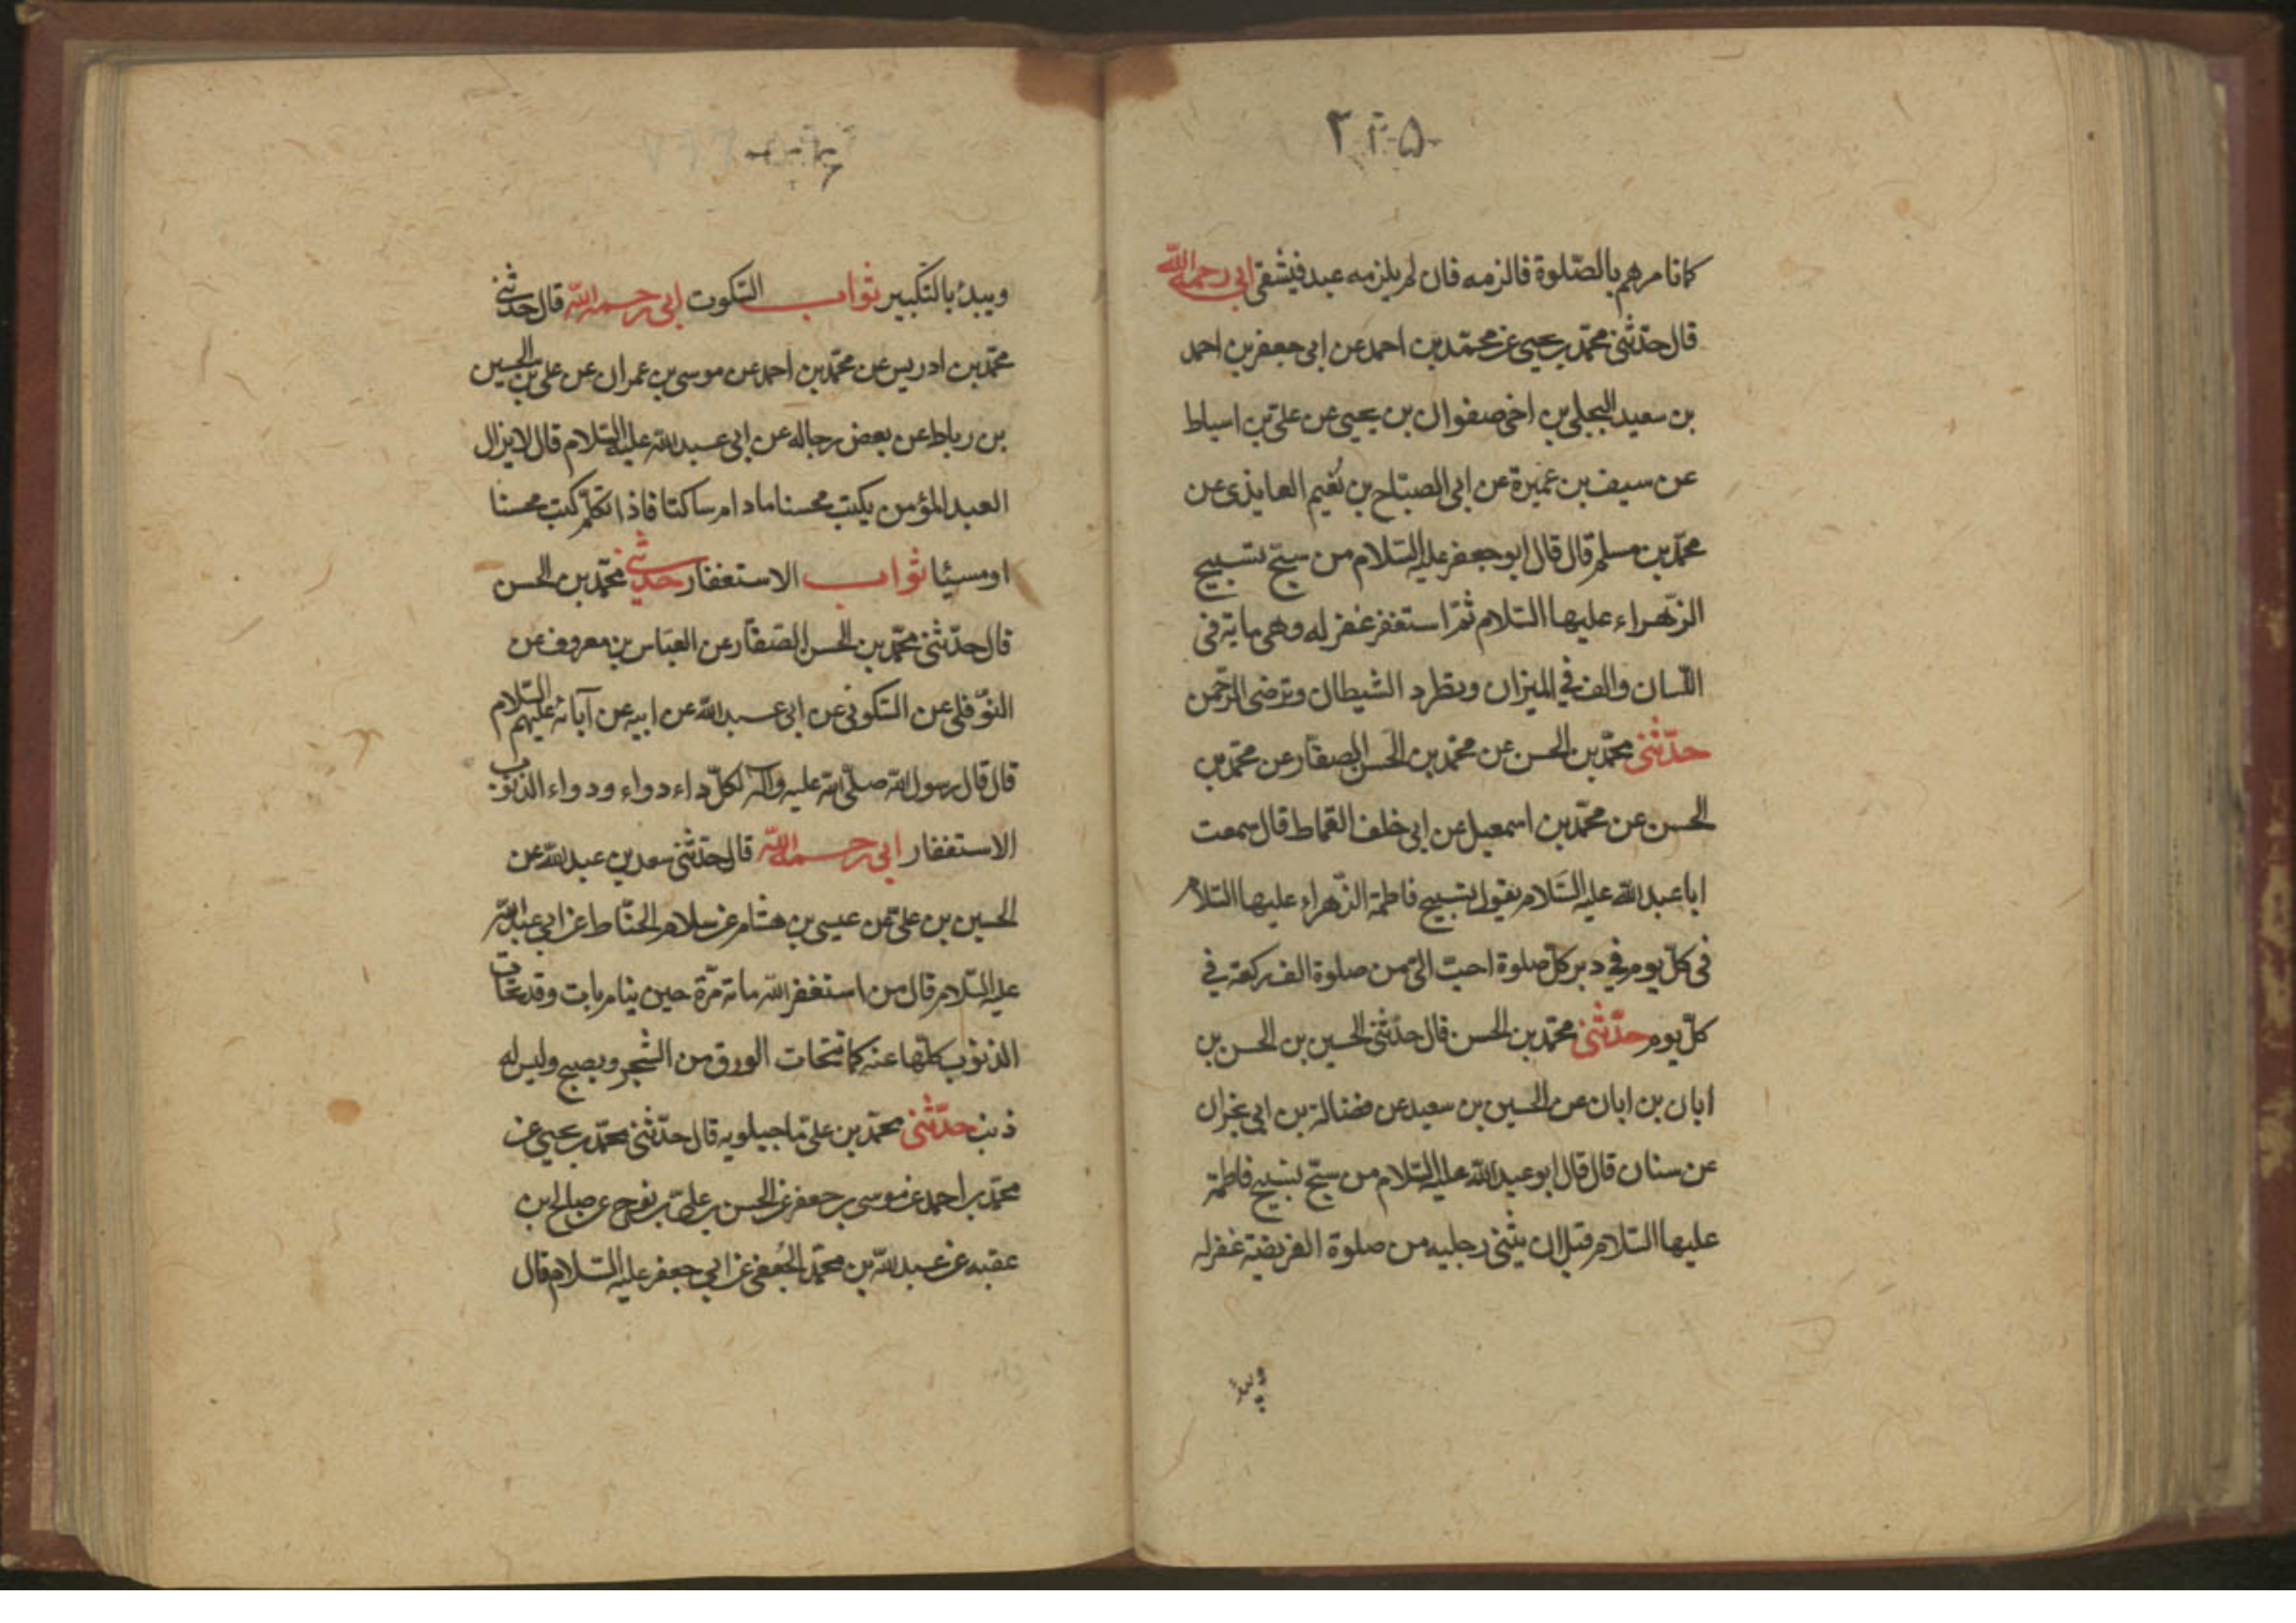 كانامرهم بالصّلوة فالزمه فان لم يلزمه عبد فيشقى ابى رحمه الله
قال حدّثنى محمّد بن يحيى عن محمّد بن احمد عن ابى جعفر بن احمد
بن سعيد البجلى بن اخى صفوان بن يحيى عن علىّ بن اسباط
عن سيف بن عميرة عن ابى الصبّاح بن نُعيم العايذى عن
محمّد بن مسلم قال قال ابو جعفر عليه السّلام من سبّح تسبيح
الزّهراء عليها السّلام ثمّ استغفر غفر له وهى ماية فى
اللّسان والف في الميزان ويطرد الشيطان وترضى الرّحمن
حدّثنى محمّد بن الحسن عن محمّد بن الحسن الصفّار عن محمّد بن
الحسن عن محمّد بن اسمعيل عن ابى خلف القمّاط قال سمعت
ابا عبد الله عليه السّلام يقول تسبيح فاطمة الزّهراء عليها السّلام
فى كلّ يوم في دبر كلّ صلوة احبّ الىّ من صلوة الف ركعة في
كلّ يوم حدّثنى محمّد بن الحسن قال حدّثنى الحسين بن الحسن بن
ابان بن ابان عن الحسين بن سعيد عن فضالة بن ابى نجران
عن سنان قال قال ابو عبد الله عليه السّلام من سبّح تسبيح فاطمة
عليها السّلام قبل ان يثنى رجليه من صلوة الفريضة غفر له
ويبدُ
ويبدُ بالتّكبير ثواب السّكوت ابى رحمه الله قال حدّثنى
محمّد بن ادريس عن محمّد بن احمد عن موسى بن عمران عن على بن الحسين
بن رباط عن بعض رجاله عن ابى عبد الله عليه السّلام قال لا يزال
العبد المؤمن يكتب محسنا مادام ساكتا فاذا تكلّم كتب محسنا
او مسيئا ثواب الاستغفار حدّثنى محمّد بن الحسن
قال حدّثنى محمّد بن الحسن الصّفّار عن العبّاس بن معروف عن
النّوفلى عن السّكونى عن ابى عبد الله عن ابيه عن آبائه عليهم السّلام
قال قال رسول الله صلّى الله عليه وآله لكلّ داء دواء ودواء الذنوب
الاستغفار ابى رحمه الله قال حدّثنى سعد بن عبد الله عن
الحسين بن علىّ عن عيسى بن هشام عن سلام الحنّاط عن ابى عبد الله
عليه السّلام قال من استغفر الله مائة مرّة حين ينام بات وقد تحات
الذنوب كلّها عنه كما تتحات الورق من الشّجر ويصبح وليس له
ذنب حدّثنى محمّد بن علىّ ماجيلويه قال حدّثنى محمّد بن يحيى عن
محمّد بن احمد عن موسى بن جعفر عن الحسن بن علىّ بن نوح عن صالح بن
عقبه عن عبد الله بن محمّد الجُعفى عن ابى جعفر عليه السّلام قال